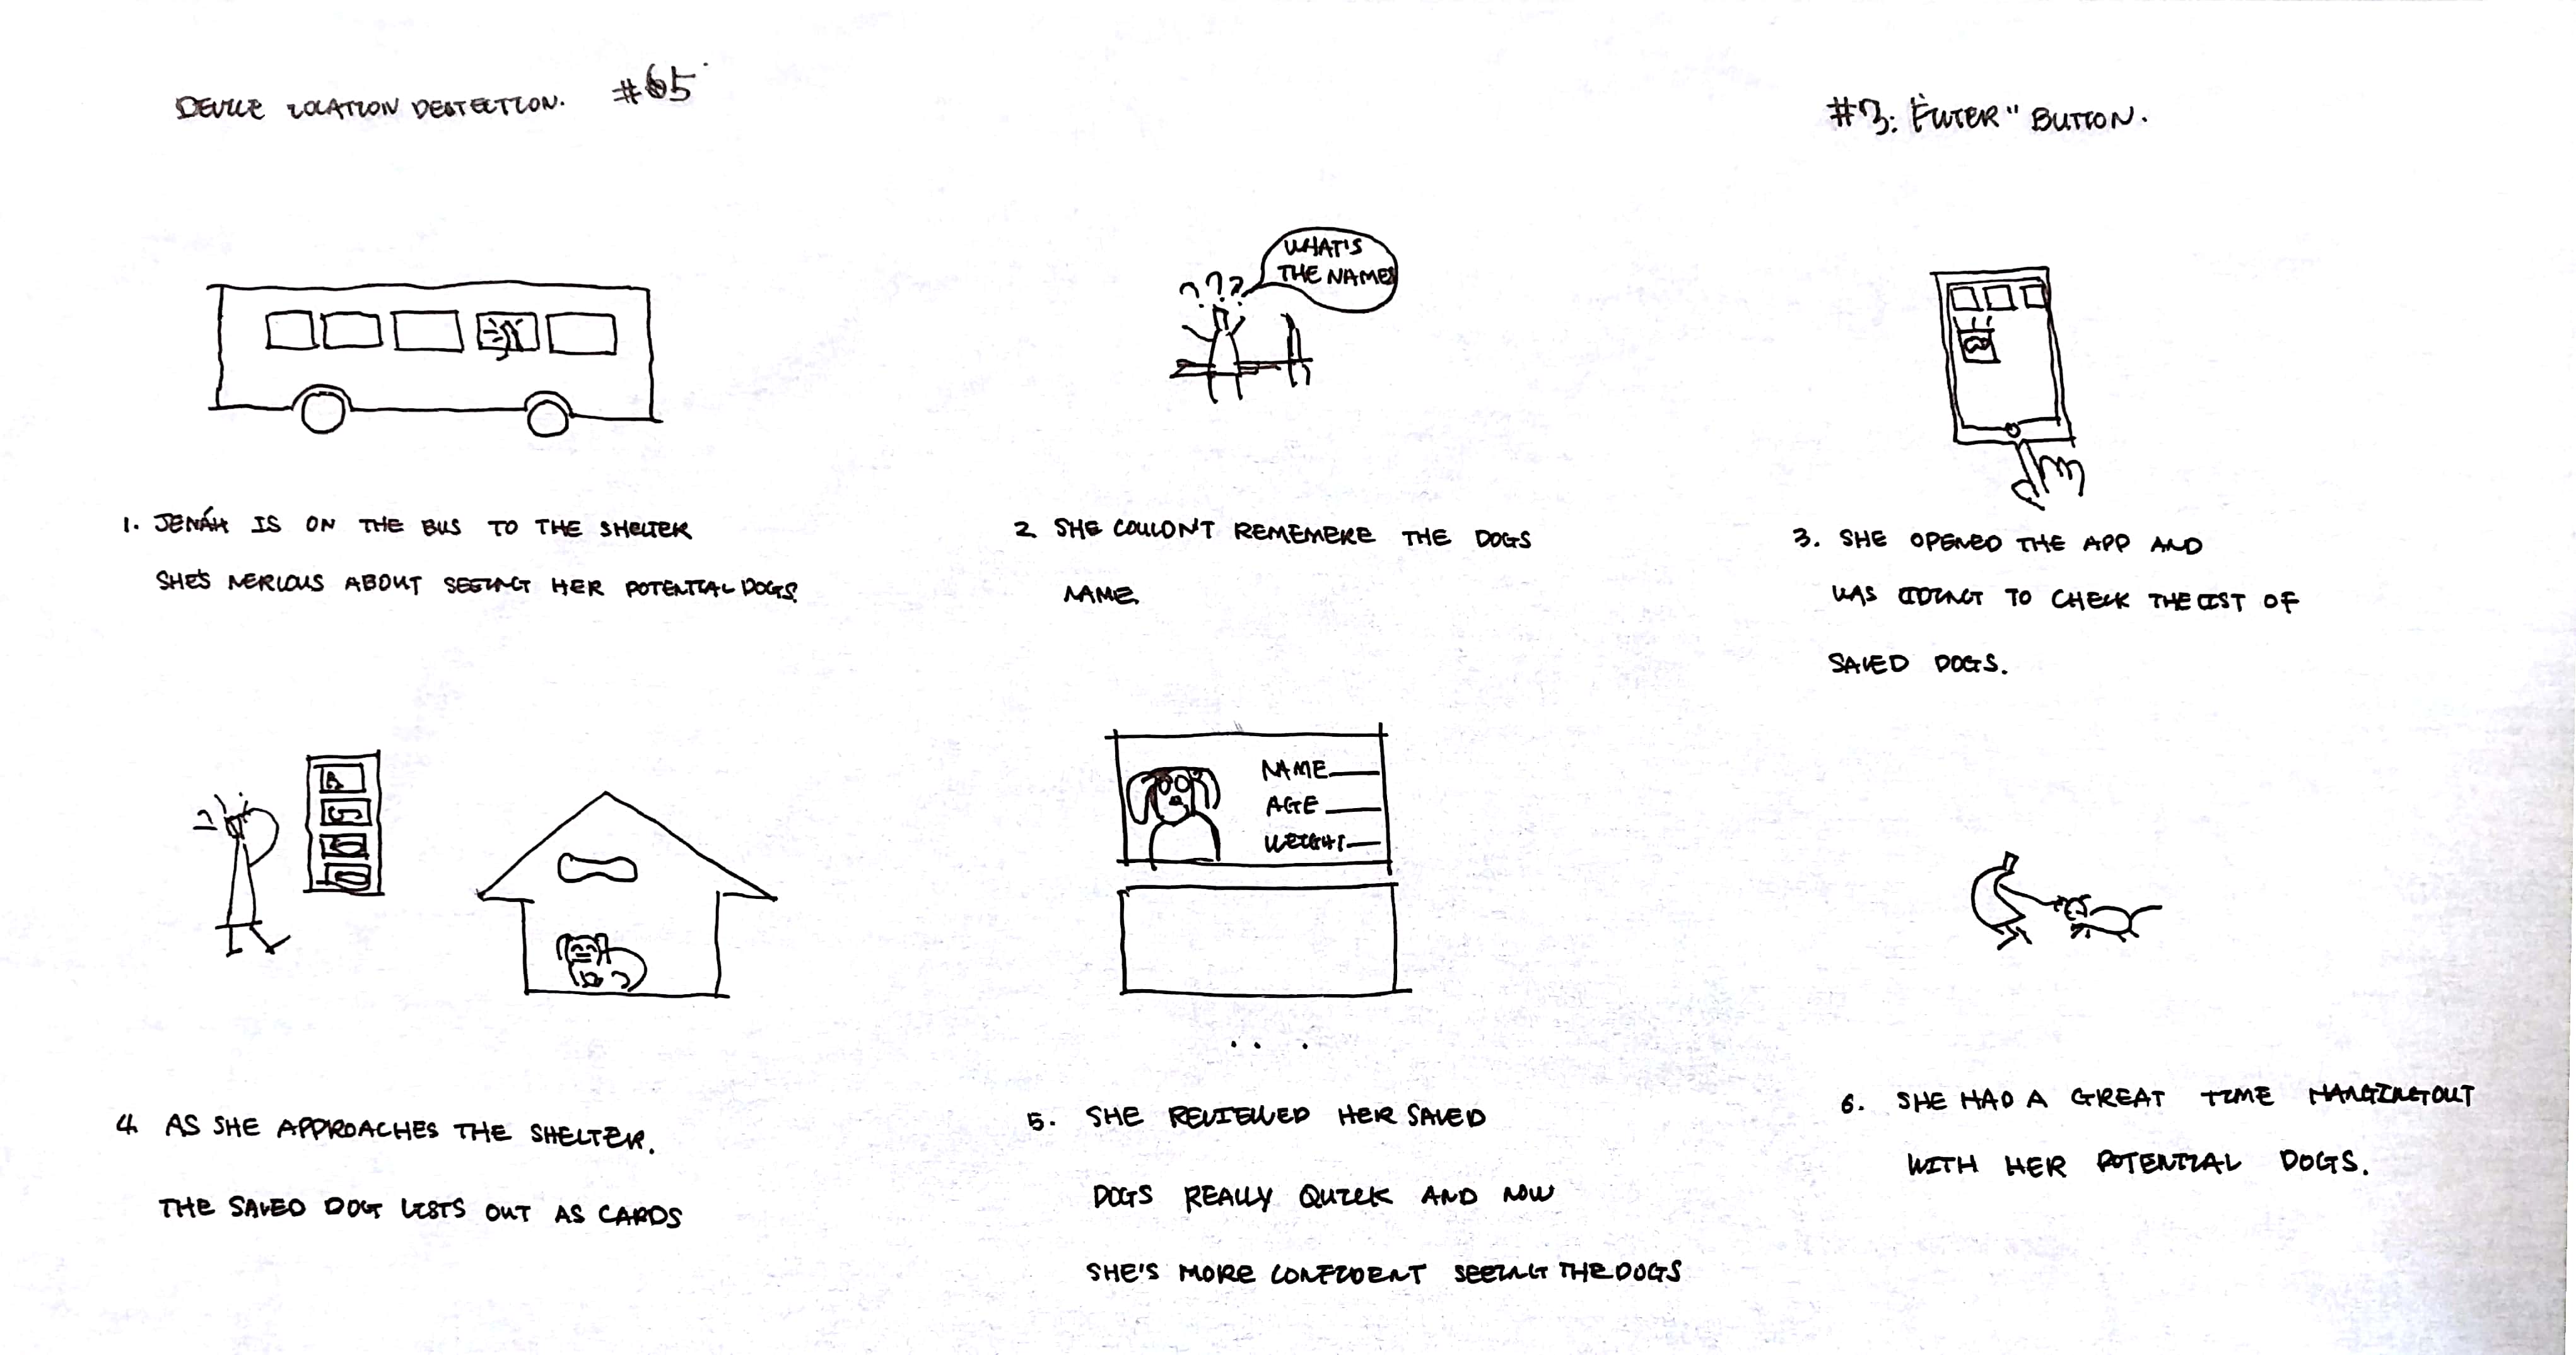 DEVICE LOCATION DESTECTION. #65
#3: "FILTER" BUTTON.
WHAT'S
THE NAMES
1. JENÁH IS ON THE BUS TO THE SHELTER
SHE'S NERVOUS ABOUT SEEING HER POTENTIAL DOGS.
2. SHE COULDN'T REMEMERE THE DOGS
NAME
3. SHE OPENED THE APP AND
WAS GOING TO CHECK THE LIST OF
SAVED DOGS.
NAME
AGE
WEIGHT
4. AS SHE APPROACHES THE SHELTER.
THE SAVED DOG LISTS OUT AS CARDS
5. SHE REVIEWED HER SAVED
DOGS REALLY QUICK AND NOW
SHE'S MORE CONFIDENT SEEING THE DOGS
6. SHE HAD A GREAT TIME HANGING OUT
WITH HER POTENTIAL DOGS.